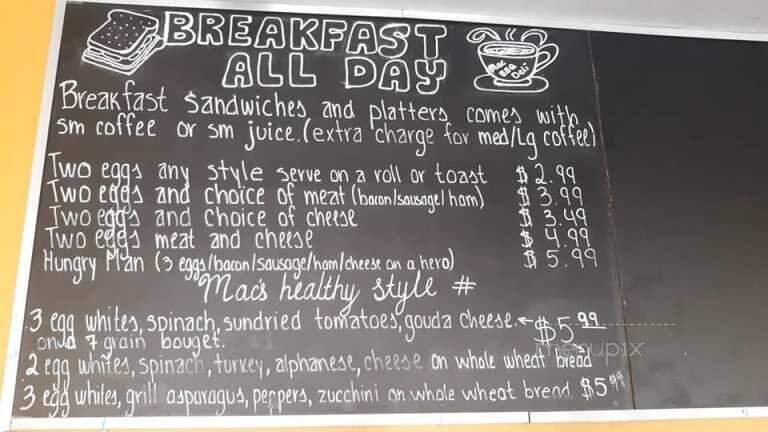 BREAKFAST
ALL DAY
Mac
Deli
Breakfast sandwiches and platters comes with
sm coffee or sm juice. (extra charge for med/Lg coffee)
Two eggs any style serve on a roll or toast $2.99
Two eggs and choice of meat (bacon/sausage/ham) $3.99
Two eggs and choice of cheese $3.49
Two eggs meat and cheese $4.99
Hungry Man (3 eggs/bacon/sausage/ham/cheese on a hero) $5.99
Mac's healthy style #
3 egg whites, spinach, sundried tomatoes, gouda cheese. ← $5.99
on a 7 grain bouget.
menupix
2 egg whites, spinach, turkey, alphanese, cheese on whole wheat bread
3 egg whiles, grill asparagus, peppers, zucchini on whole wheat bread $5.99